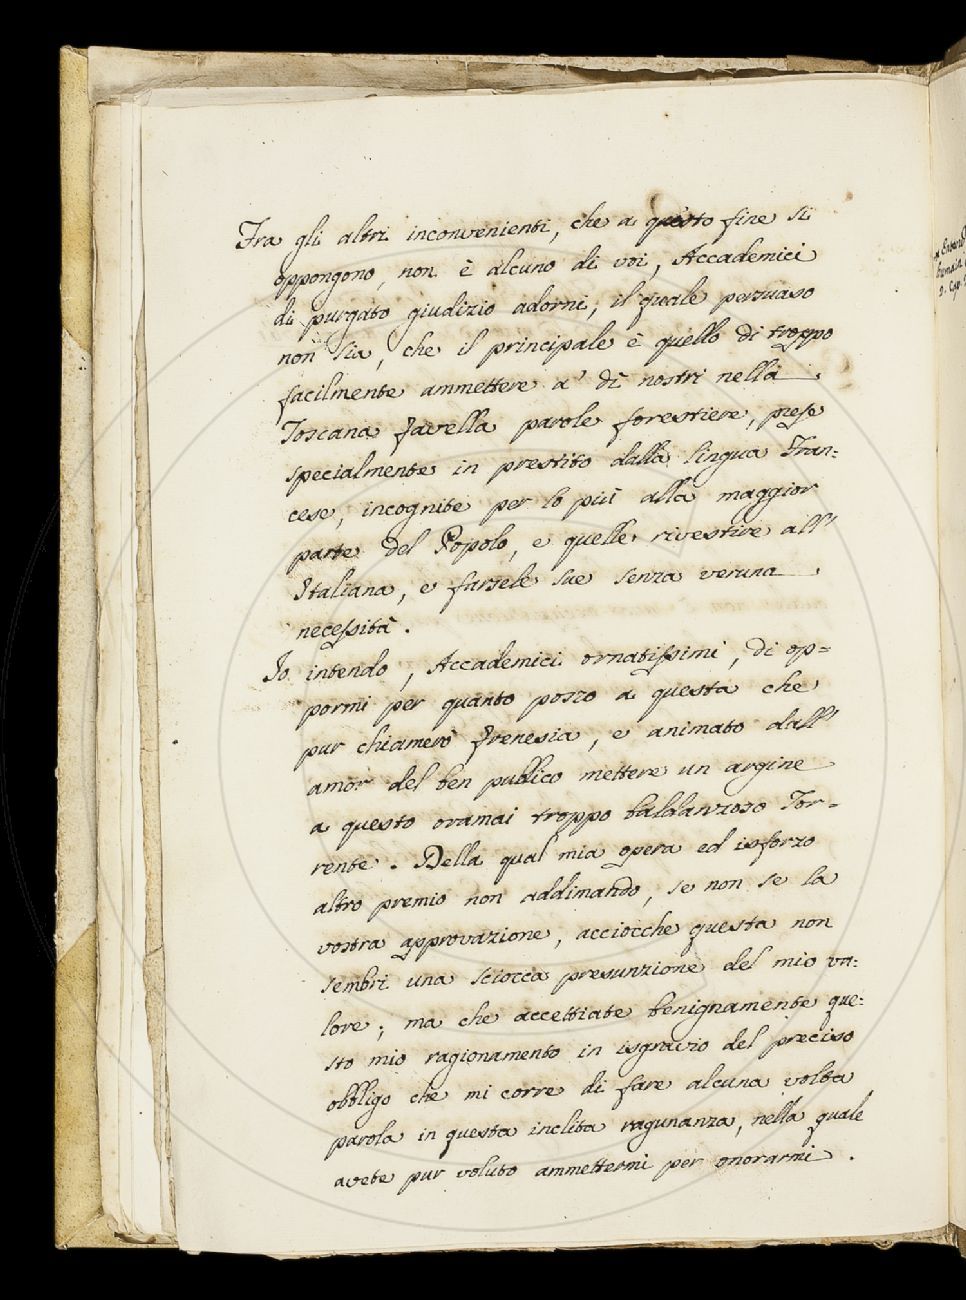 Fra gli altri inconvenienti, che a questo fine si
oppongono, non è alcuno di voi, Accademici
di purgato giudizio adorni, il quale persuaso
non sia, che il principale è quello di troppo
facilmente ammettere a' dì nostri nella
Toscana favella parole forestiere, prese
specialmente in prestito dalla lingua Fran=
cese, incognite per lo più alla maggior
parte del Popolo, e quelle rivestire all'
Italiana, e farsele sue senza veruna
necessità.
Io intendo, Accademici ornatissimi, di op=
pormi per quanto posso a questa che
pur chiamerò frenesia, e animato dall'
amor del ben publico mettere un argine
a questo oramai troppo baldanzoso Tor=
rente. Della qual mia opera ed isforzo
altro premio non addimando, se non se la
vostra approvazione, acciocche questa non
sembri una sciocca presunzione del mio va=
lore; ma che accettiate benignamente que=
sto mio ragionamento in isgravio del preciso
obbligo che mi corre di fare alcuna volta
parola in questa inclita ragunanza, nella quale
avete pur voluto ammettermi per onorarmi.